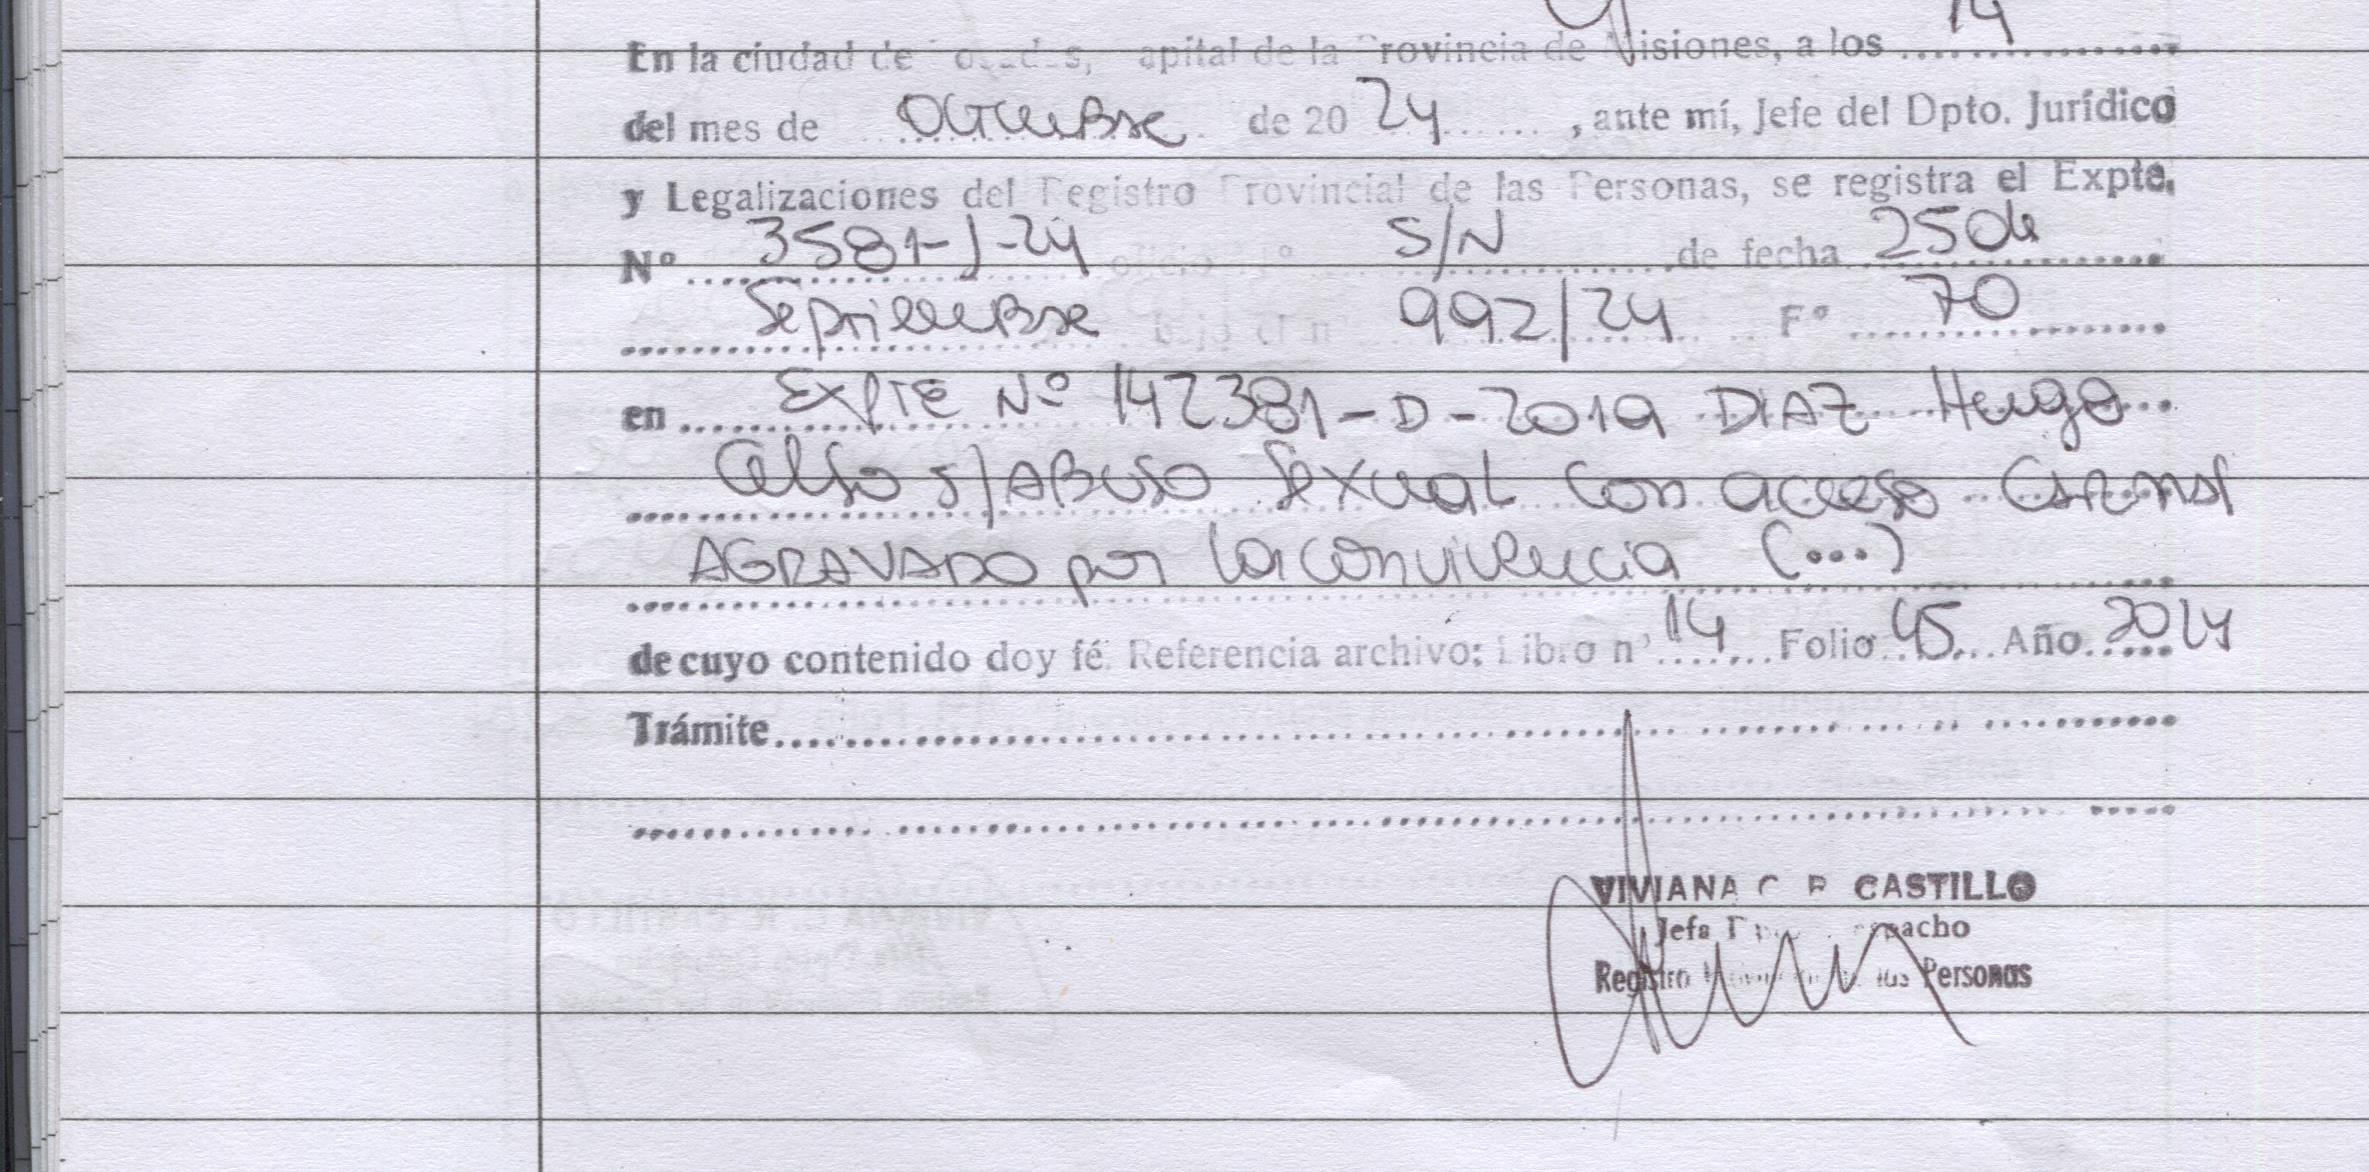 En la ciudad de Posadas, Capital de la Provincia de Misiones, a los 14
del mes de Octubre de 20 24, ante mí, Jefe del Dpto. Jurídico
y Legalizaciones del Registro Provincial de las Personas, se registra el Expte.
Nº 3581-J-24 oficio nº S/N de fecha 25 de
Septiembre bajo el nº 992/24 Fº 70
en Expte Nº 142381-D-2019 DIAZ Hugo
Celso s/ ABUSO Sexual con acceso CARNAL
AGRAVADO por la convivencia (...)
de cuyo contenido doy fé. Referencia archivo: Libro nº 14 Folio 45 Año 2024
Trámite
VIVIANA C. R. CASTILLO
Jefa Dpto. Despacho
Registro Provincial de las Personas